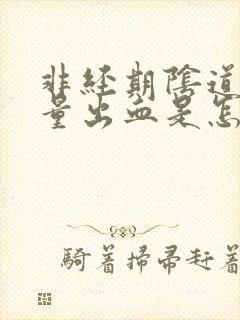 非经期陰道
量出血是怎
騎着掃帚赶着